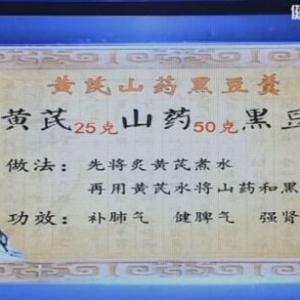 黄芪山药黑豆羹
黄芪25克山药50克黑豆
做法：先将炙黄芪煮水
再用黄芪水将山药和黑
功效：补肺气 健脾气 强肾